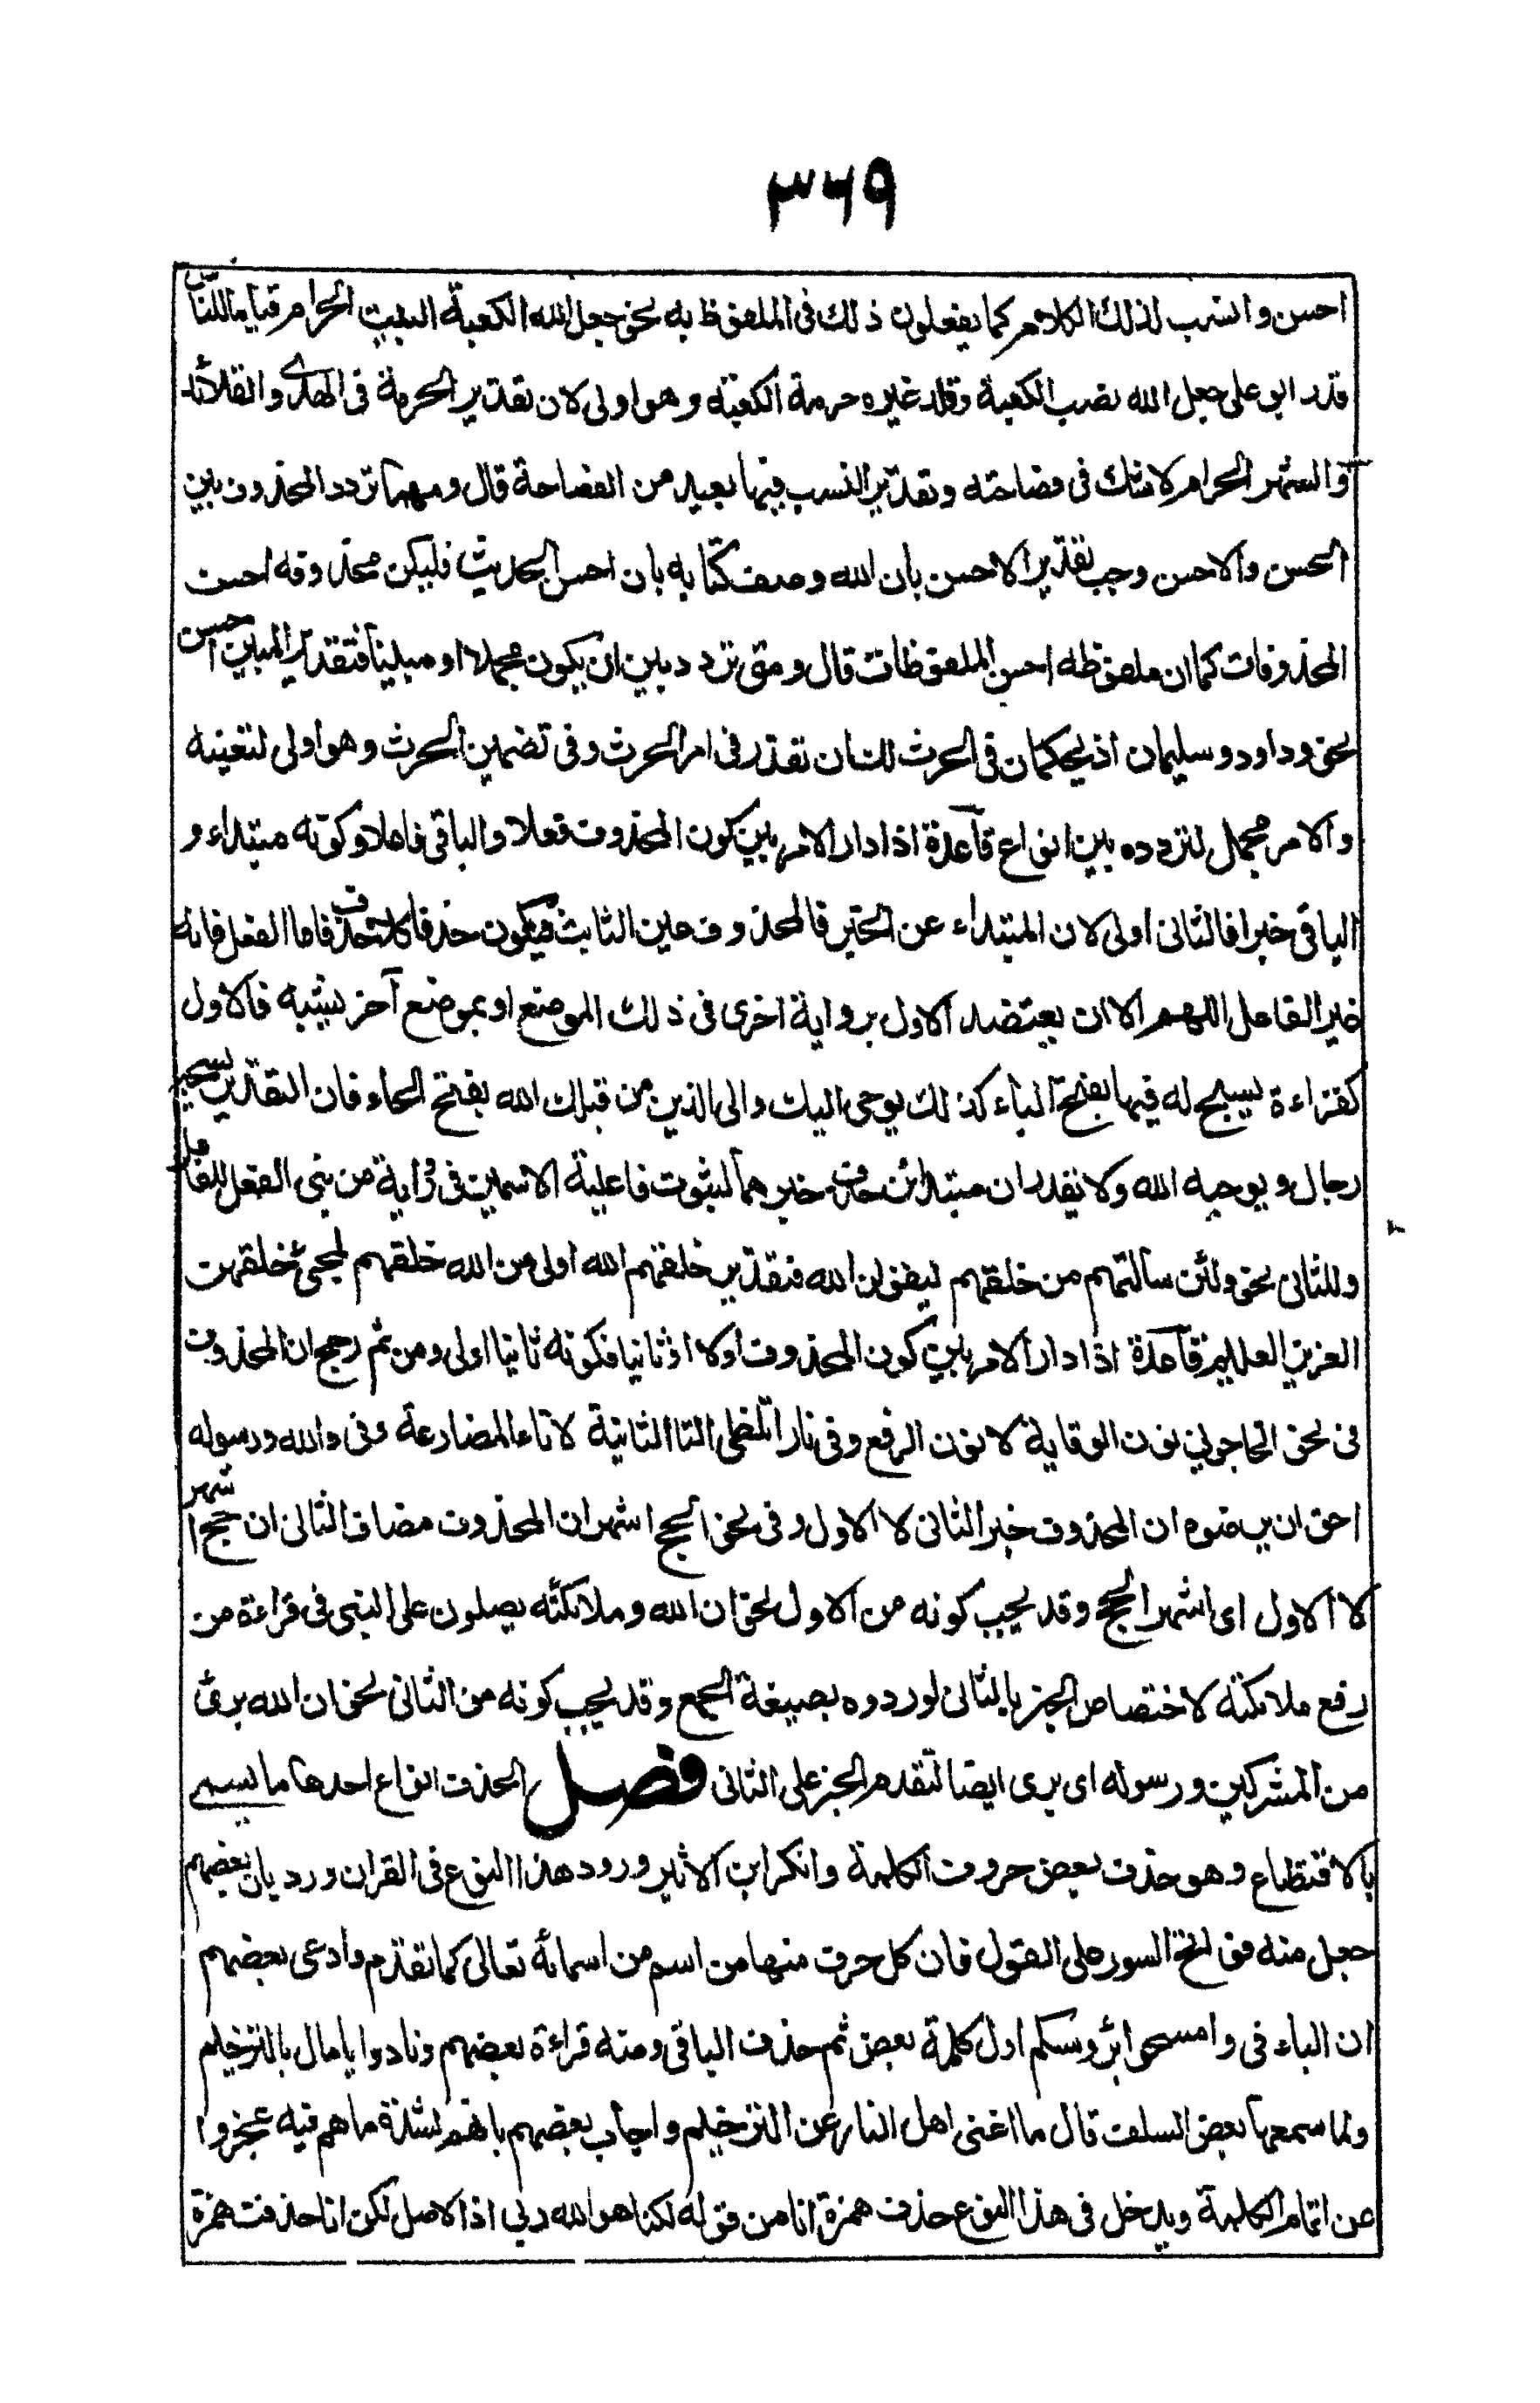 ٣٦٩
احسن وانسب لذلك الكلام كما يفعلون ذلك فى الملفوظ به نحو جعل الله الكعبة البيت الحرام قياما للناس
قدر ابو على جعل الله نصب الكعبة وقدر غيره حرمة الكعبة وهو اولى لان تقدير الحرمة فى الهدى والقلائد
والشهر الحرام لاشك فى فصاحته وتقدير النصب فيها بعيد من الفصاحة قال ومهما تردد المحذوف بين
الحسن والاحسن وجب تقدير الاحسن بان الله وصف كتابه بان احسن الحديث فليكن محذوفه احسن
المحذوفات كما ان ملفوظه احسن الملفوظات قال ومتى تردد بين ان يكون مجملا او مبينا فتقدير المبين احسن
نحو وداود وسليمان اذ يحكمان فى الحرث لك ان تقدر فى امر الحرث وفى تضمين الحرث وهو اولى لتعينه
والامر مجمل لتردده بين انواع قاعدة اذا دار الامر بين كون المحذوف فعلا والباقى فاعلا وكونه مبتداء و
الباقى خبرا فالثانى اولى لان المبتداء عن الخبر فالمحذوف عين الثابت فيكون حذفا كلا حذف فاما الفعل فانه
غير الفاعل اللهم الا ان يعتضد الاول برواية اخرى فى ذلك الموضع او بموضع آخر يشبهه فالاول
كقراءة يسبح له فيها بفتح الباء كذلك يوحى اليك والى الذين من قبلك الله بفتح الحاء فان التقدير يسبحه
رجال ويوحيه الله ولا يقدران مبتدائن حذف خبرهما لثبوت فاعلية الاسمين فى رواية من بنى الفعل للفاعل
وللثانى نحو ولئن سالتهم من خلقهم ليقولن الله فتقدير خلقهم الله اولى من الله خلقهم لمجئ خلقهن
العزيز العليم قاعدة اذا دار الامر بين كون المحذوف اولا او ثانيا فكونه ثانيا اولى ومن ثم رجح ان المحذوف
فى نحو اتحاجونى نون الوقاية لا نون الرفع وفى نارا تلظى التا الثانية لا تاء المضارعة وفى والله ورسوله
احق ان يرضوه ان المحذوف خبر الثانى لا الاول وفى نحو الحج اشهر ان المحذوف مضاف الثانى ان حج اشهر
لا الاول اى اشهر الحج وقد يجب كونه من الاول نحو ان الله وملائكته يصلون على النبى فى قراءة من
رفع ملائكته لاختصاص الخبر بالثانى لوردوه بصيغة الجمع وقد يجب كونه من الثانى نحو ان الله برئ
من المشركين ورسوله اى برى ايضا لتقدم الخبر على الثانى فصل الحذف انواع احدها ما يسمى
بالاقتطاع وهو حذف بعض حروف الكلمة وانكر ابن الاثير ورود هذا النوع فى القران ورد بان بعضهم
جعل منه فواتح السور على القول فان كل حرف منها من اسم من اسمائه تعالى كما تقدم وادعى بعضهم
ان الباء فى وامسحوا برؤسكم اول كلمة بعض ثم حذف الباقى ومنه قراءة بعضهم ونادوا يا مال بالترخيم
ولما سمعها بعض السلف قال ما اغنى اهل النار عن الترخيم واجاب بعضهم بانهم لشدة ما هم فيه عجزوا
عن اتمام الكلمة ويدخل فى هذا النوع حذف همزة انا من قوله لكنا هو الله ربى اذ الاصل لكن انا حذفت همزة